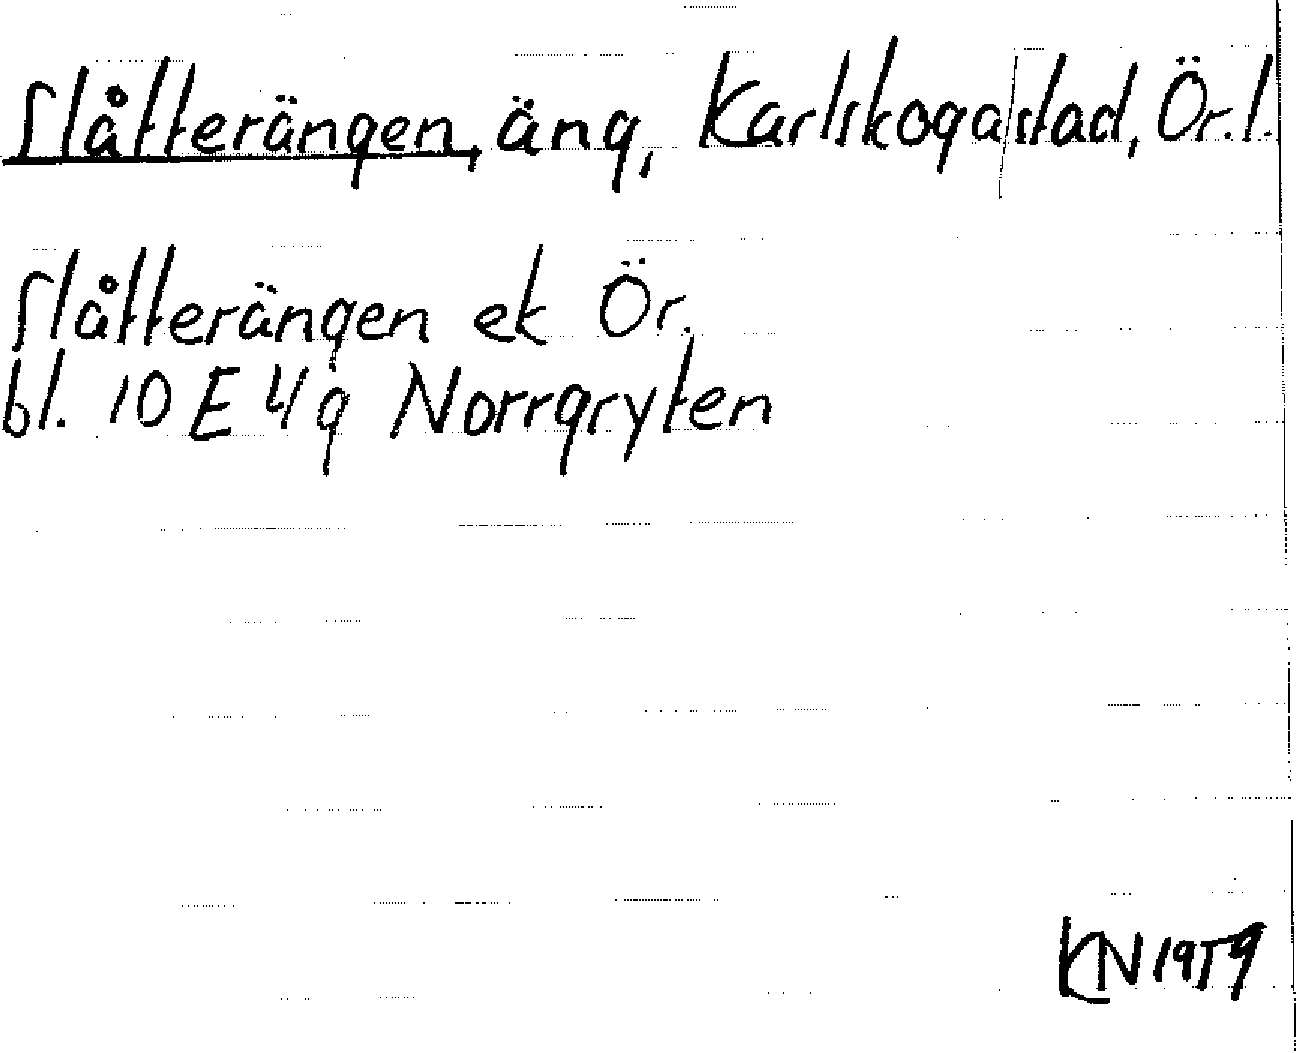 Slåtterängen, äng, Karlskoga stad, Ör.l.
Slåtterängen ek Ör.
bl. 10 E 4g Norrgryten
KN 1959